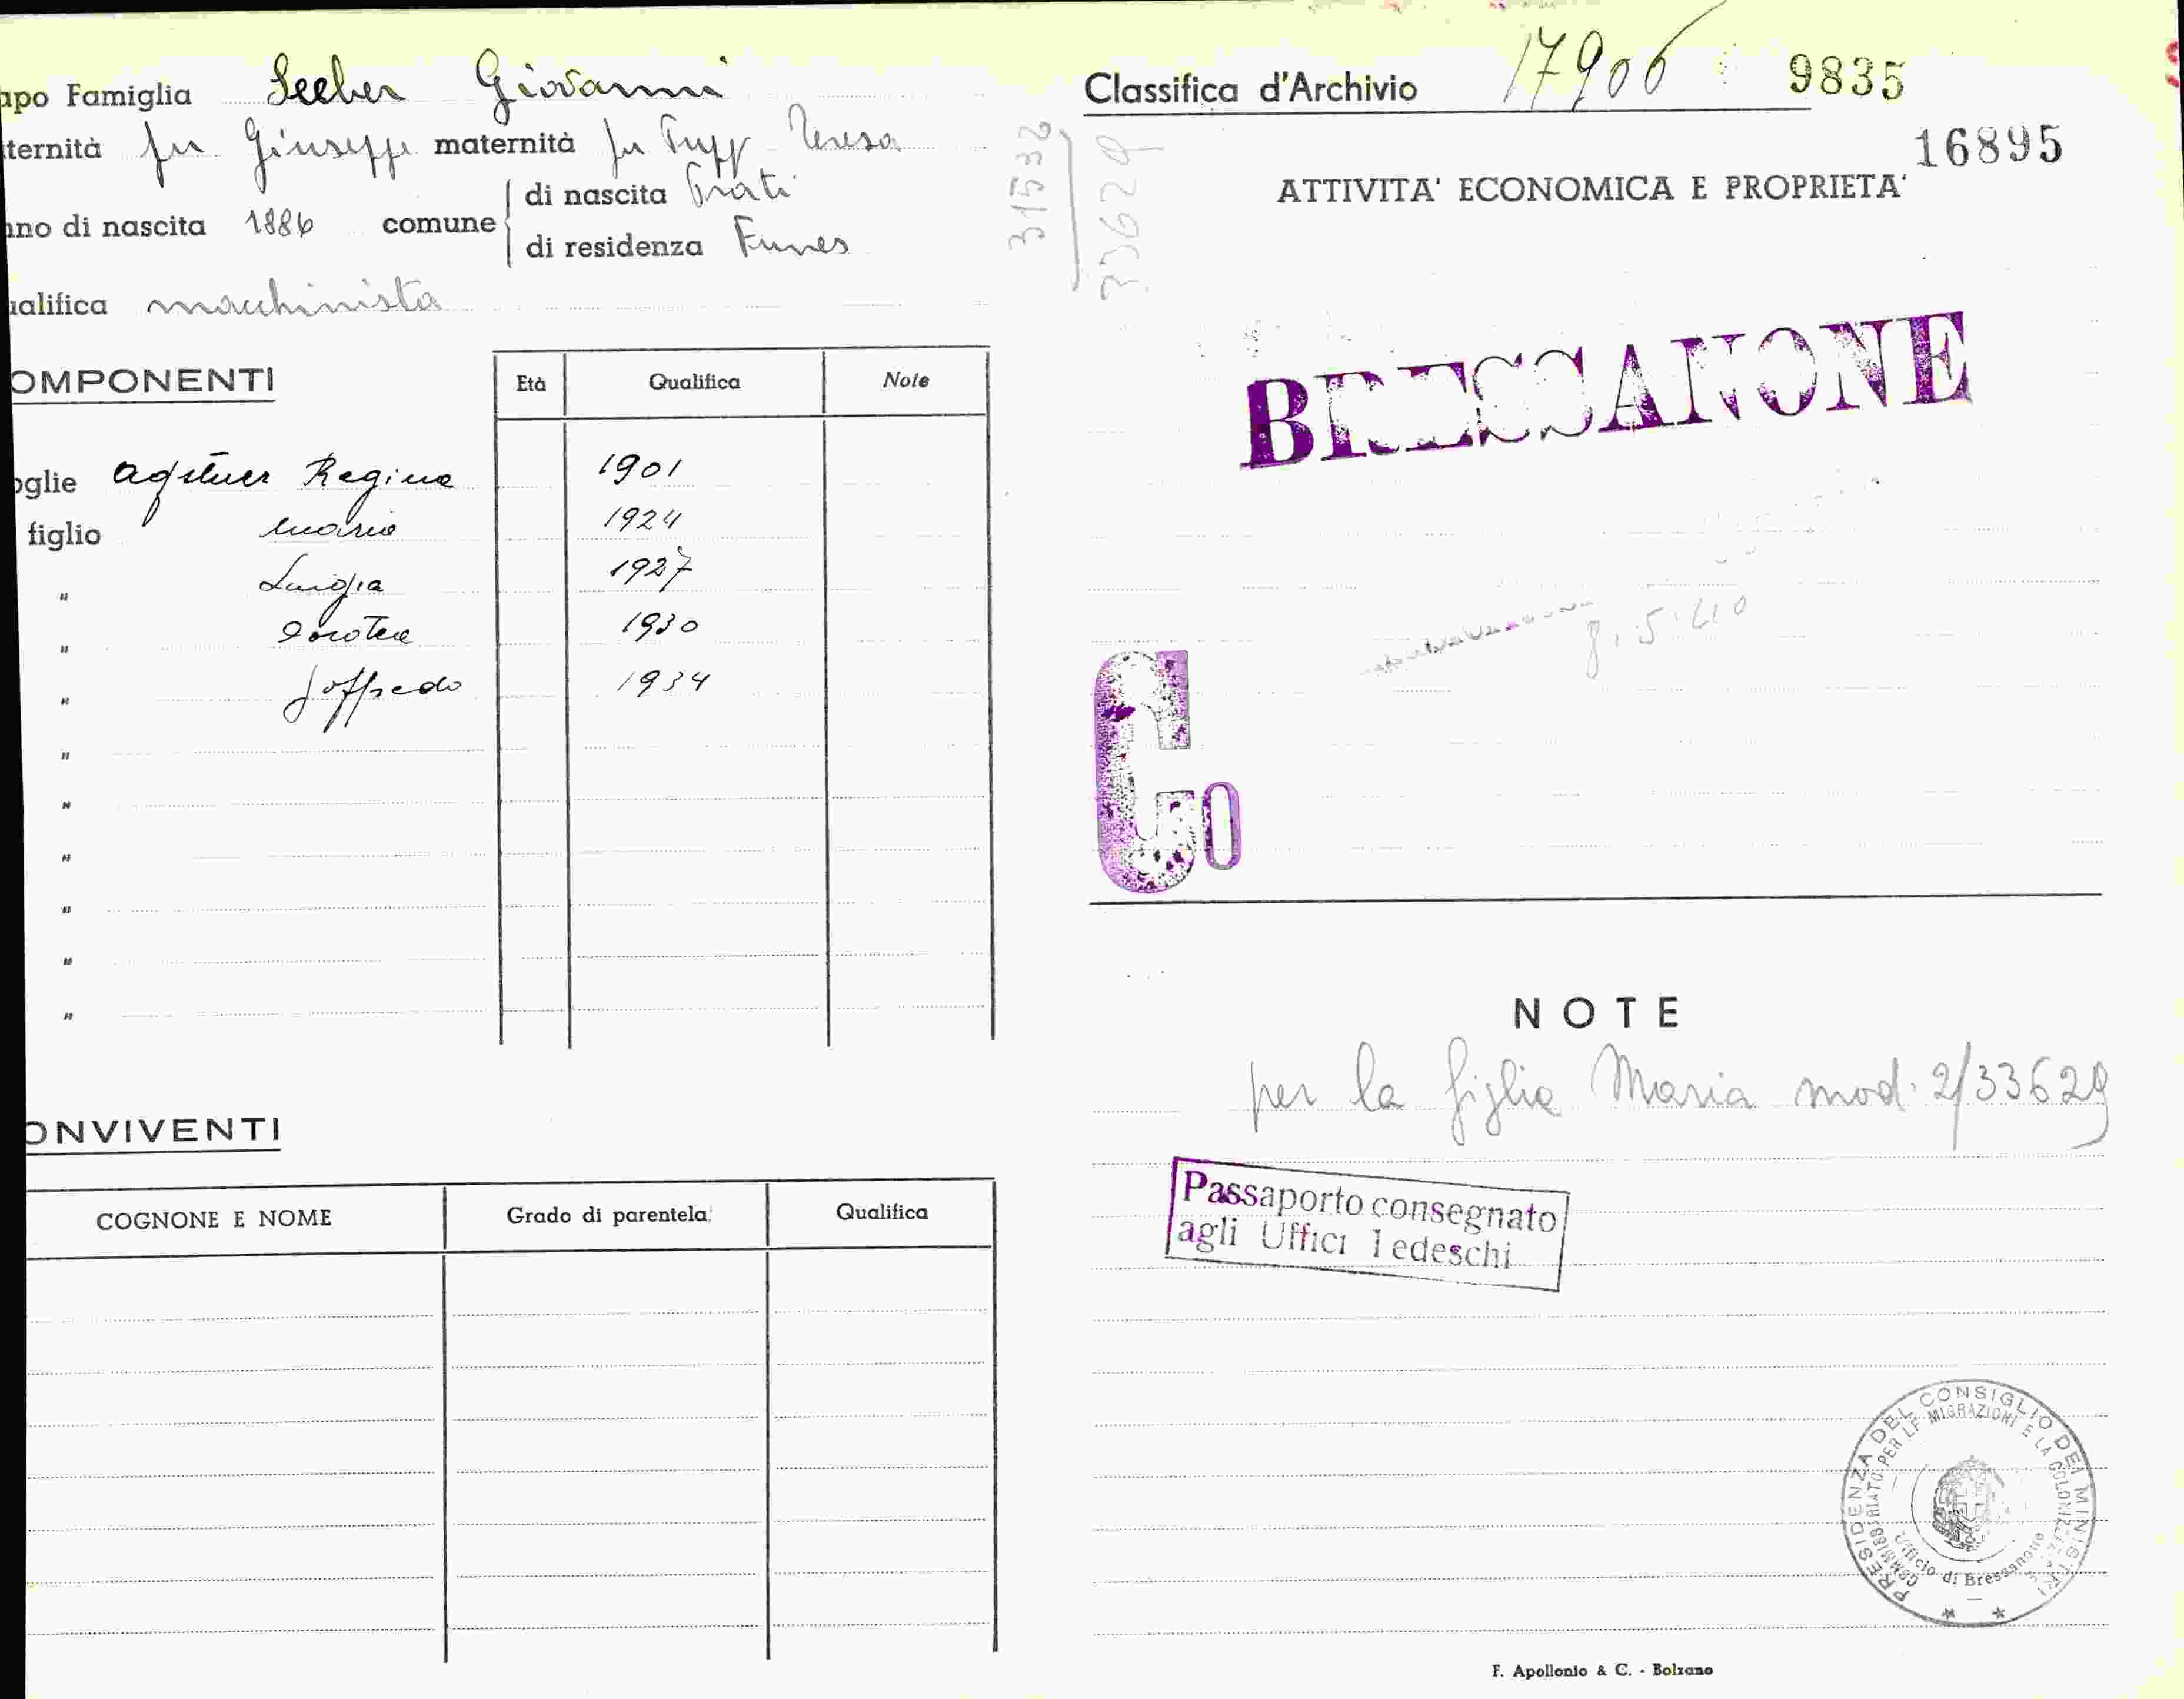 apo Famiglia Seeber Giovanni
ternità fu Giuseppe maternità fu Tupp Teresa
nno di nascita 1886 comune di nascita Prati
di residenza Funes
ualifica macchinista
OMPONENTI
Età Qualifica Note
oglie Agstner Regina 1901
figlio Maria 1924
" Luigia 1927
" Dorotea 1930
" Goffredo 1934
"
"
"
"
"
"
ONVIVENTI
COGNONE E NOME Grado di parentela Qualifica
31532
33629
Classifica d'Archivio 17906 9835
16895
ATTIVITA' ECONOMICA E PROPRIETA'
BRESSANONE
8.5.40
G0
NOTE
per la figlia Maria mod. 2/33629
Passaporto consegnato
agli Uffici Tedeschi
PRESIDENZA DEL CONSIGLIO DEI MINISTRI
COMMISSARIATO PER LE MIGRAZIONI E LA COLONIZZAZ.
Ufficio di Bressanone
F. Apollonio & C. - Bolzano